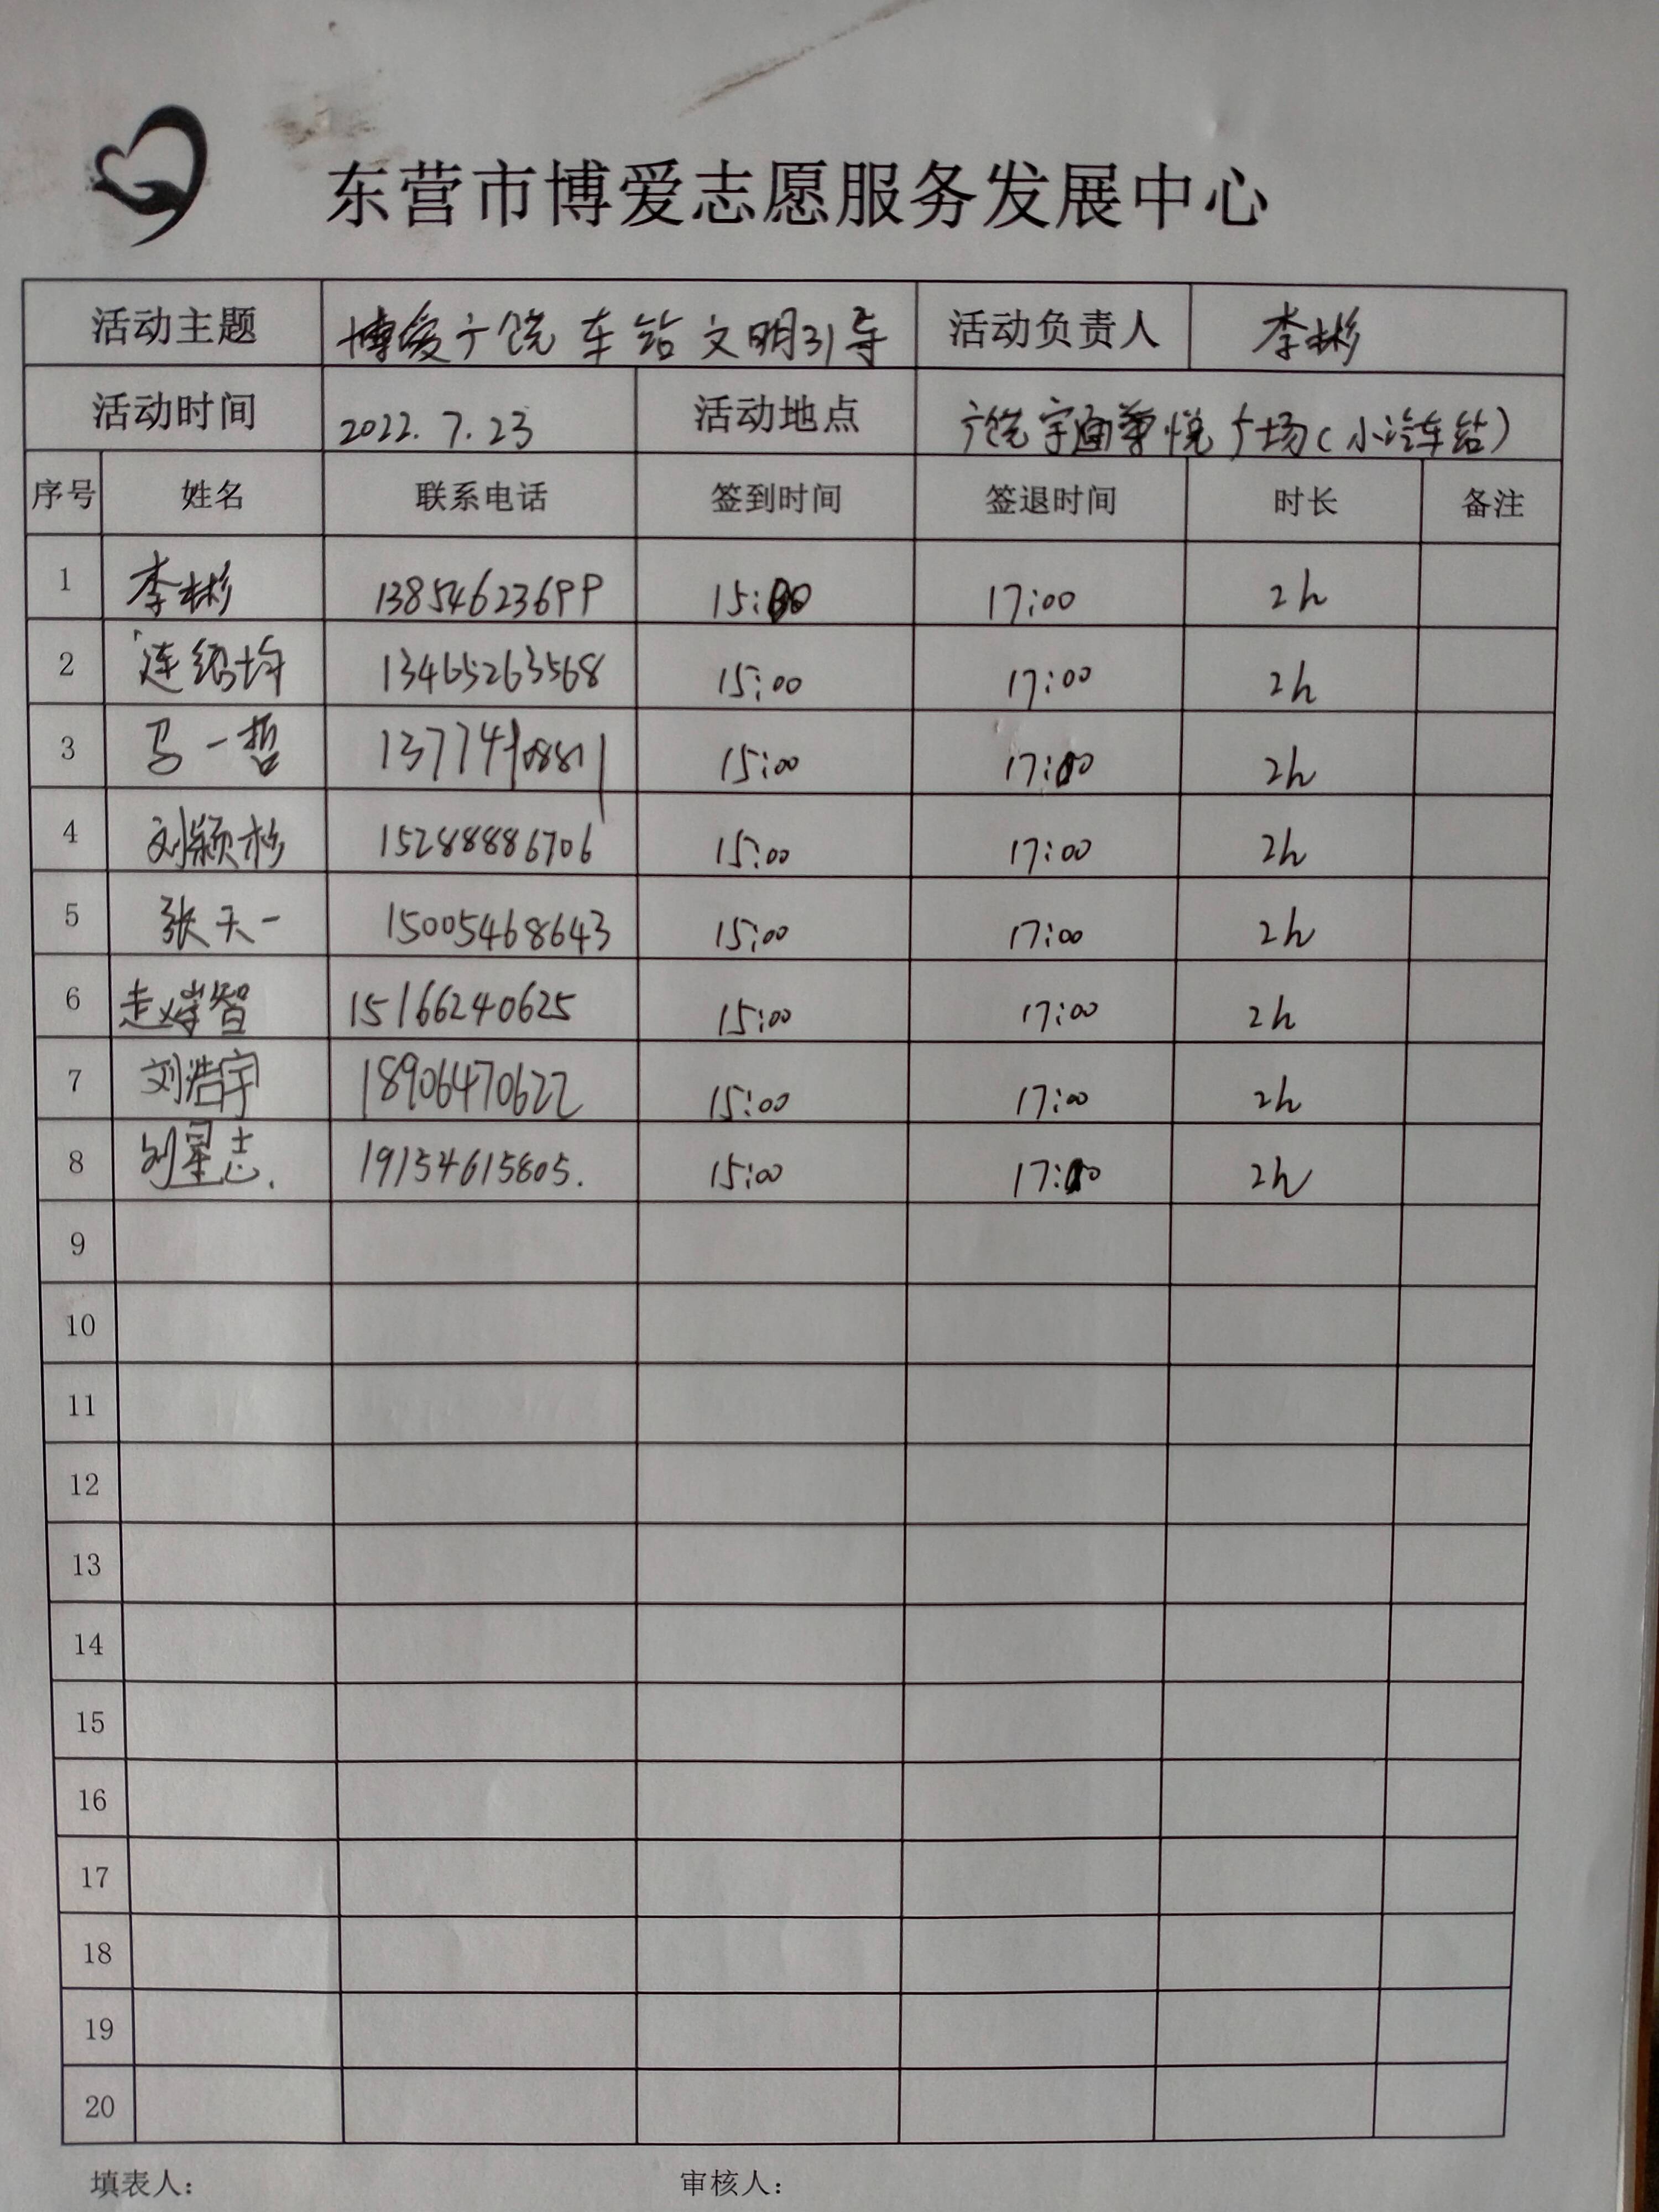 东营市博爱志愿服务发展中心
活动主题 博爱广饶车站文明引导 活动负责人 李彬
活动时间 2022.7.23 活动地点 广饶宇通尊悦广场(小汽车站)
序号 姓名 联系电话 签到时间 签退时间 时长 备注
1 李彬 13854623699 15:00 17:00 2h
2 连绍均 13465263568 15:00 17:00 2h
3 马一哲 15:00 17:00 2h
4 刘颖杉 15288886706 15:00 17:00 2h
5 张天一 15005468643 15:00 17:00 2h
6 15166240625 15:00 17:00 2h
7 刘浩宇 18906470622 15:00 17:00 2h
8 刘星志. 19154615805. 15:00 17:00 2h
9
10
11
12
13
14
15
16
17
18
19
20
填表人: 审核人: